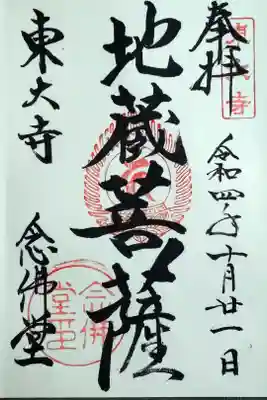 奉拝
令和四年十月廿一日
地蔵菩薩
東大寺
念佛堂
念佛
堂印